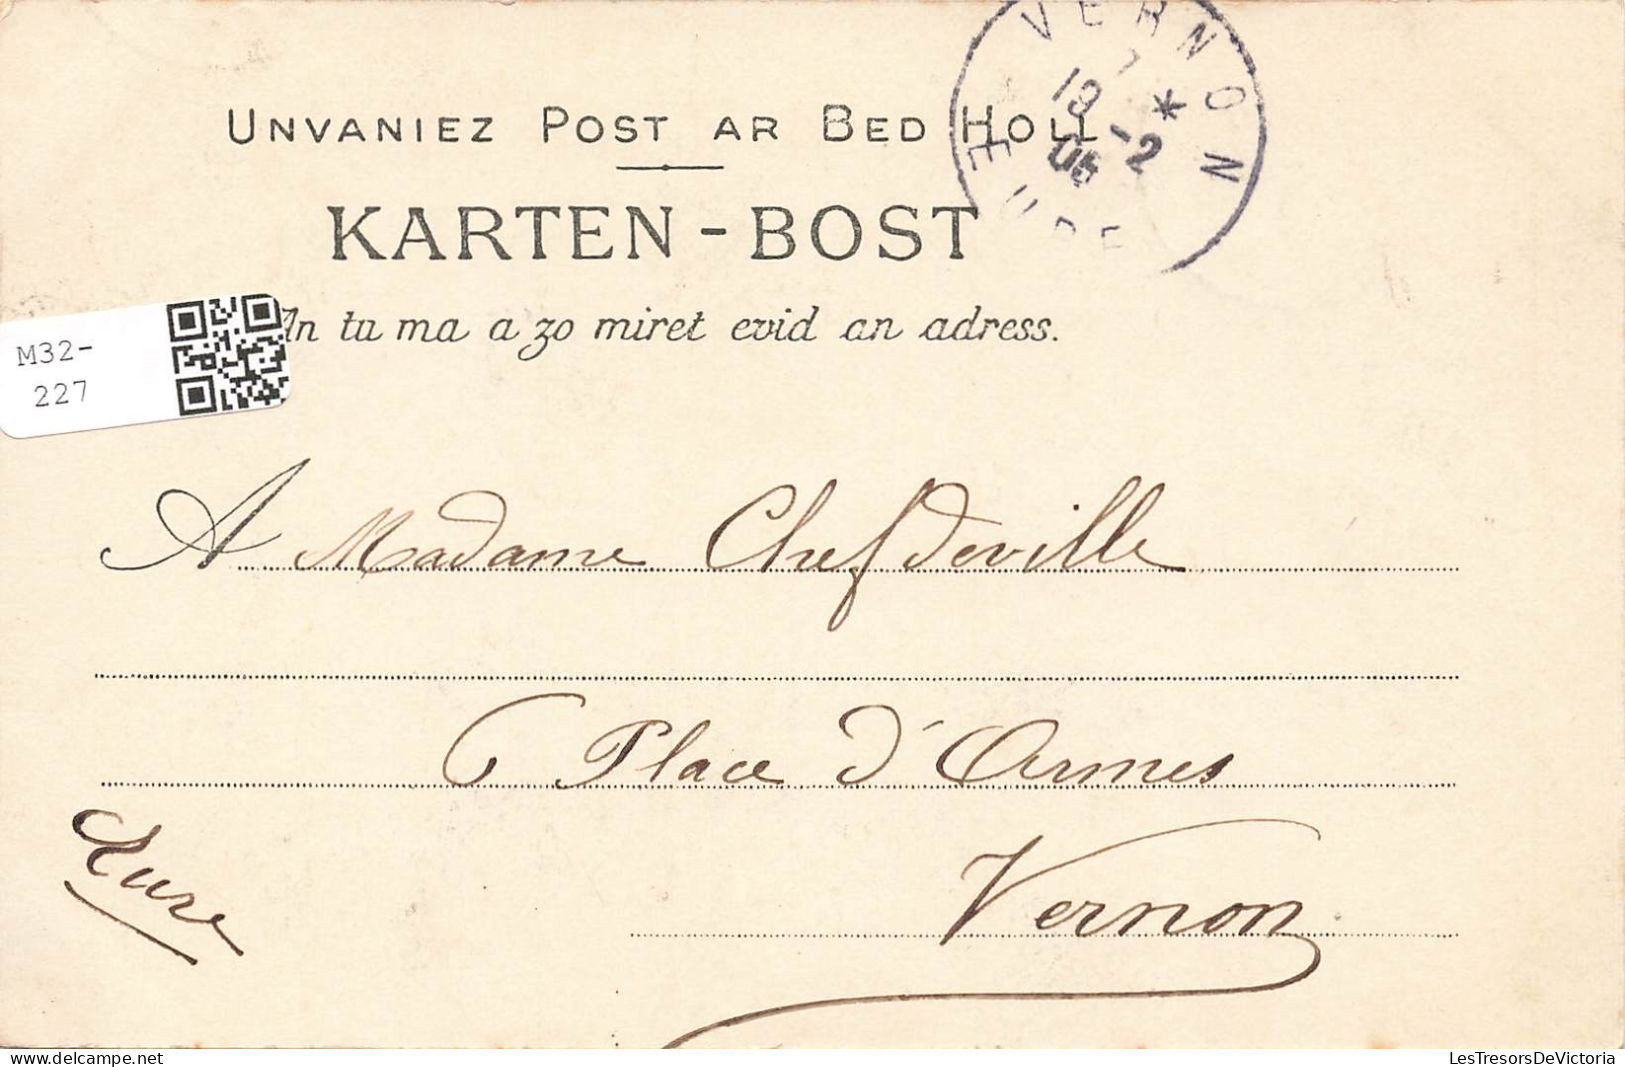 VERNON
19 -2
06
EURE
UNVANIEZ POST AR BED HOLL
KARTEN-BOST
An tu ma a zo miret evid an adress.
M32-
227
A Madame Chefdeville
6 Place d'Armes
Vernon
Eure
LesTresorsDeVictoria